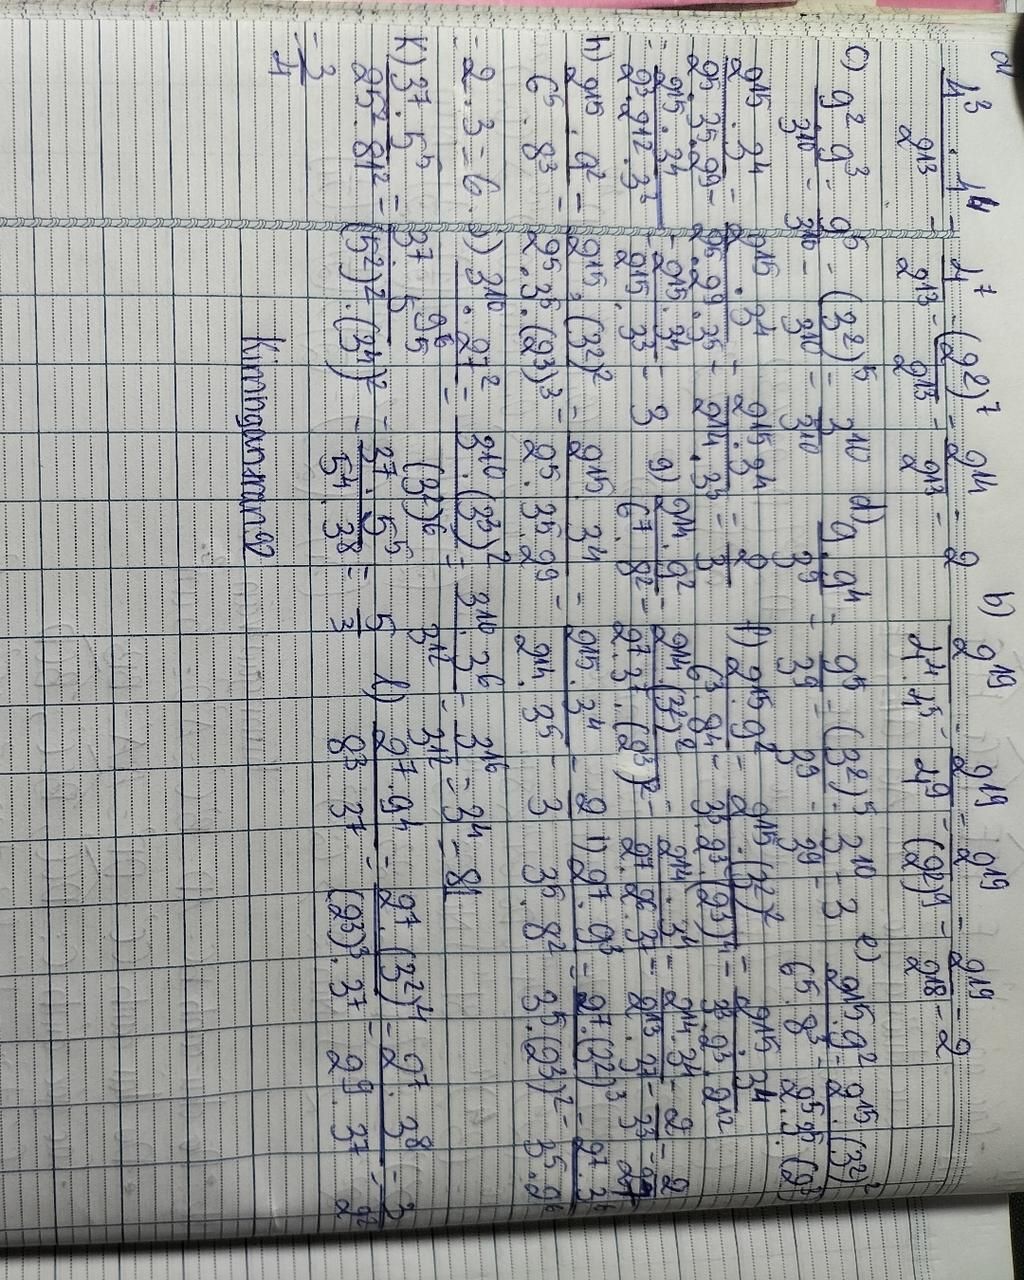 a) 4³ . 4⁴ / 2¹³ = 4⁷ / 2¹³ = (2²)⁷ / 2¹³ = 2¹⁴ / 2¹³ = 2 b) 2¹⁹ / 4⁴ . 4⁵ = 2¹⁹ / 4⁹ = 2¹⁹ / (2²)⁹ = 2¹⁹ / 2¹⁸ = 2
c) 9² . 9³ / 3¹⁰ = 9⁵ / 3¹⁰ = (3²)⁵ / 3¹⁰ = 3¹⁰ / 3¹⁰ d) 9 . 9⁴ / 3⁹ = 9⁵ / 3⁹ = (3²)⁵ / 3⁹ = 3¹⁰ / 3⁹ = 3 e) 2¹⁵ . 9² / 6⁵ . 8³ = 2¹⁵ . (3²)² / 2⁵ . 3⁵ . (2³)
2¹⁵ . 3⁴ / 2⁵ . 3⁵ . 2⁹ = 2¹⁵ . 3⁴ / 2⁵ . 2⁹ . 3⁵ = 2¹⁵ . 3⁴ / 2¹⁴ . 3⁵ = 2 / 3 f) 2¹⁵ . 9² / 6³ . 8⁴ = 2¹⁵ . (3²)² / 3³ . 2³ . (2³)⁴ = 2¹⁵ . 3⁴ / 3³ . 2³ . 2¹²
= 2¹⁵ . 3⁴ / 2³ . 2¹² . 3³ = 2¹⁵ . 3⁴ / 2¹⁵ . 3³ = 3 g) 2¹⁴ . 9² / 6⁷ . 8² = 2¹⁴ . (3²)² / 2⁷ . 3⁷ . (2³)² = 2¹⁴ . 3⁴ / 2⁷ . 2⁶ . 3⁷ = 2¹⁴ . 3⁴ / 2¹³ . 3⁷ = 2 / 3³ = 2
h) 2¹⁵ . 9² / 6⁵ . 8³ = 2¹⁵ . (3²)² / 2⁵ . 3⁵ . (2³)³ = 2¹⁵ . 3⁴ / 2⁵ . 3⁵ . 2⁹ = 2¹⁵ . 3⁴ / 2¹⁴ . 3⁵ = 2 / 3 i) 2⁷ . 9³ / 3⁵ . 8² = 2⁷ . (3²)³ / 3⁵ . (2³)² = 2⁷ . 3⁶ / 3⁵ . 2⁶
= 2 . 3 = 6 . j) 3¹⁰ . 27² / 9⁶ = 3¹⁰ . (3³)² / (3²)⁶ = 3¹⁰ . 3⁶ / 3¹² = 3¹⁶ / 3¹² = 3⁴ = 81
k) 3⁷ . 5⁵ / 25² . 81² = 3⁷ . 5⁵ / (5²)² . (3⁴)² = 3⁷ . 5⁵ / 5⁴ . 3⁸ = 5 / 3 l) 2⁷ . 9⁴ / 8³ . 3⁷ = 2⁷ . (3²)⁴ / (2³)³ . 3⁷ = 2⁷ . 3⁸ / 2⁹ . 3⁷ = 3 / 2²
= 3 / 4